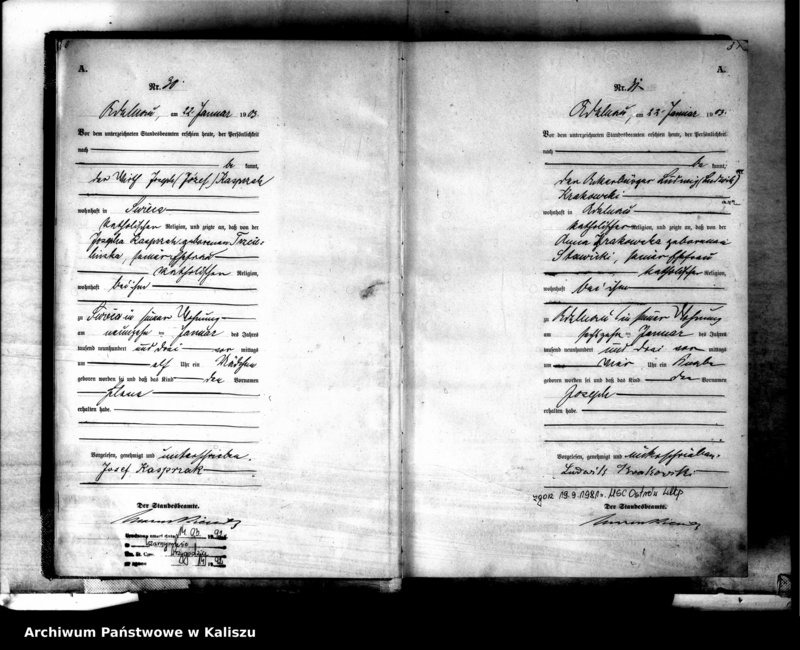 A.
Nr. 30.
Adelnau, am 22 Januar 1903.
Vor dem unterzeichneten Standesbeamten erschien heute, der Persönlichkeit
nach
be kannt,
der Wirth Joseph/Józef/Kasprzak
wohnhaft in
katholischer Religion, und zeigte an, daß von der
Kasprzak geborenen
seiner Ehefrau
katholischen Religion,
wohnhaft bei ihm
zu in seiner Wohnung
am neunzehn Januar des Jahres
tausend neunhundert und drei vor mittags
um elf Uhr ein Mädchen
geboren worden sei und daß das Kind den Vornamen
erhalten habe.
Vorgelesen, genehmigt und unterschrieben.
Josef Kasprzak
Der Standesbeamte.
A.
Nr. 31.
Adelnau, am 22 Januar 1903.
Vor dem unterzeichneten Standesbeamten erschien heute, der Persönlichkeit
nach
be kannt,
der Ackerbürger Ludwig/Ludwik/
Krakowski
wohnhaft in Adelnau
katholischer Religion, und zeigte an, daß von der
Anna Krakowska geborenen
Stawicki, seiner Ehefrau
katholischer Religion,
wohnhaft bei ihm
zu Adelnau in seiner Wohnung
am Januar des Jahres
tausend neunhundert und drei vor mittags
um vier Uhr ein Knabe
geboren worden sei und daß das Kind den Vornamen
Joseph
erhalten habe.
Vorgelesen, genehmigt und unterschrieben.
Ludwik Krakowski
zgon 19.9.1981r. USC Ostrów Wlkp
Der Standesbeamte.
Archiwum Państwowe w Kaliszu